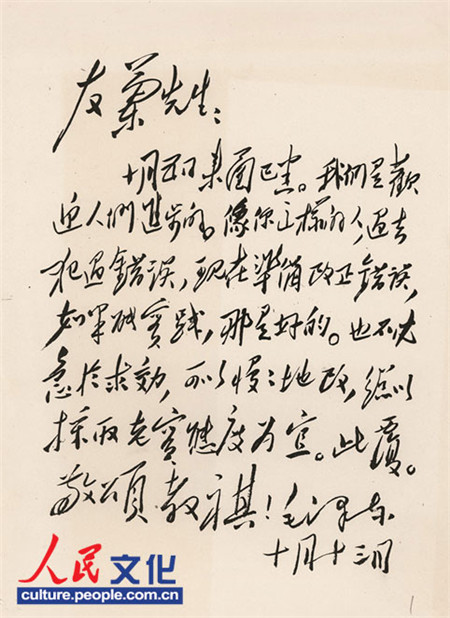 友蘭先生：
十月五日来函已悉。我們是歡
迎人們進步的。像你这樣的人，過去
犯過錯誤，現在準備改正錯誤，
如果能實踐，那是好的。也不必
急於求効，可以慢〻地改，總以
採取老實態度为宜。此覆。
敬頌教祺！毛泽东
十月十三日
人民文化
culture.people.com.cn
1